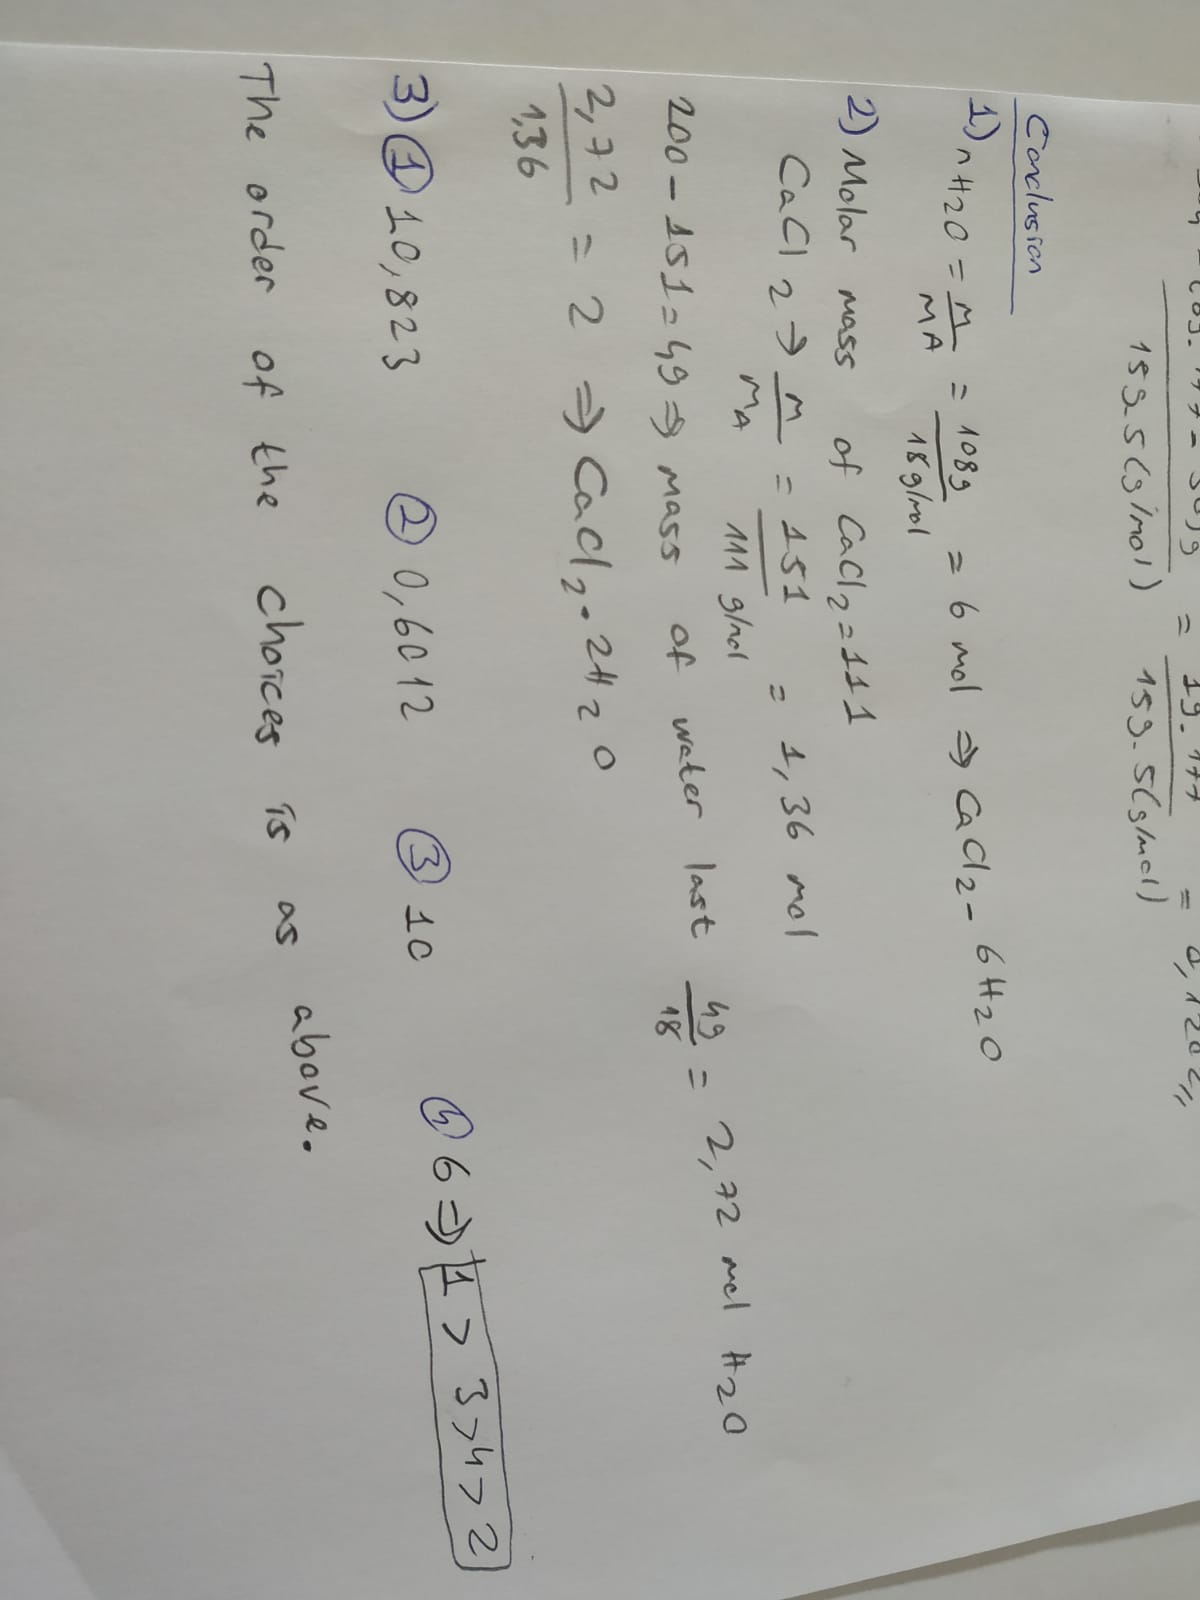 159.5(g/mol) 159.5(g/mol)
Conclusion
1) nH2O = M/MA = 108g/18g/mol = 6 mol ⇒ CaCl2-6H2O
2) Molar mass of CaCl2=111
CaCl2 → M/MA = 151/111 g/mol = 1,36 mol
200-151=49 ⇒ mass of water last 49/18 = 2,72 mol H2O
2,72/1,36 = 2 ⇒ CaCl2.2H2O
3) ① 10,823 ② 0,6012 ③ 10 ④ 6 ⇒ 1 > 3>4> 2
The order of the choices is as above.